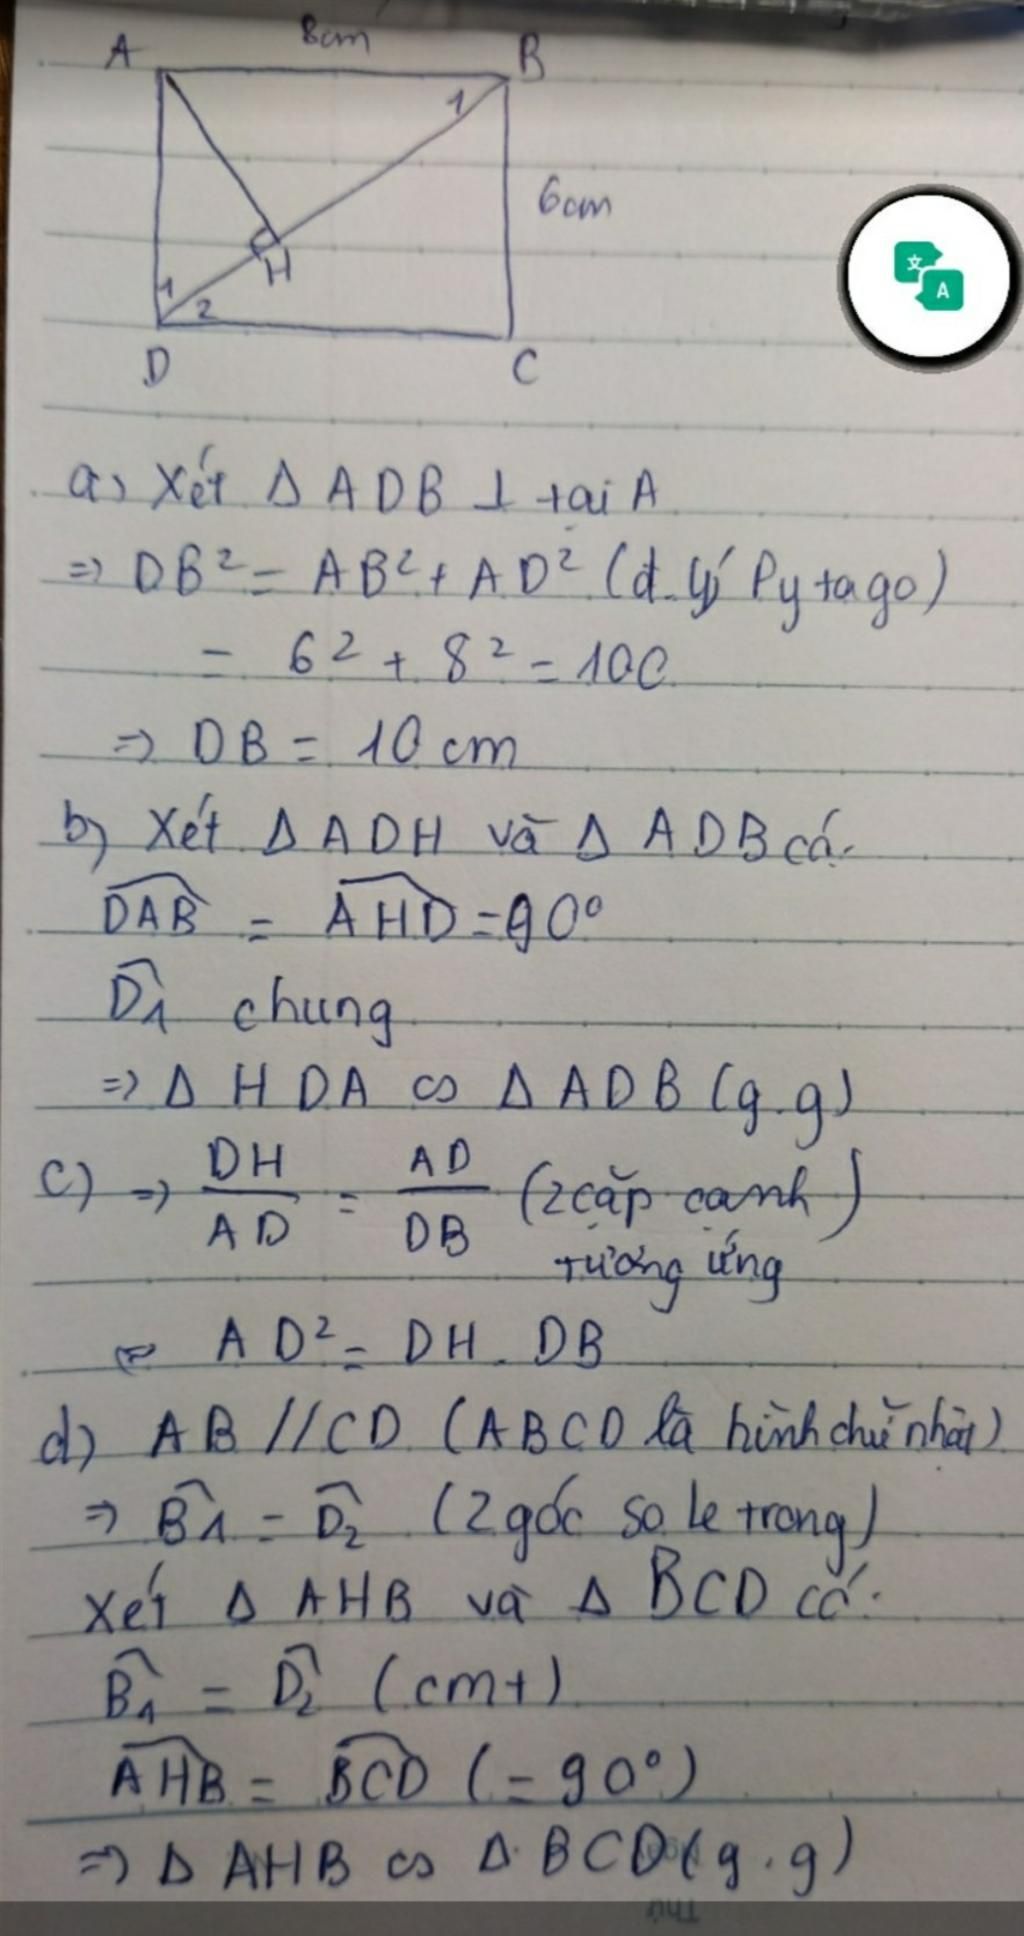 A 8cm B
1
6cm
H
1 2
D C
a) Xét Δ ADB ⊥ tại A
=> DB² = AB² + AD² (đ.lý Pytago)
= 6² + 8² = 100
=> DB = 10 cm
b) Xét Δ ADH và Δ ADB có:
\widehat{DAB} = \widehat{AHD} = 90°
\widehat{D_1} chung
=> Δ HDA ∽ Δ ADB (g.g)
c) => \frac{DH}{AD} = \frac{AD}{DB} (2 cặp cạnh
tương ứng)
AD² = DH . DB
d) AB // CD (ABCD là hình chữ nhật)
=> \widehat{B_1} = \widehat{D_2} (2 góc so le trong)
Xét Δ AHB và Δ BCD có:
\widehat{B_1} = \widehat{D_2} (cmt)
\widehat{AHB} = \widehat{BCD} (= 90°)
=> Δ AHB ∽ Δ BCD (g.g)